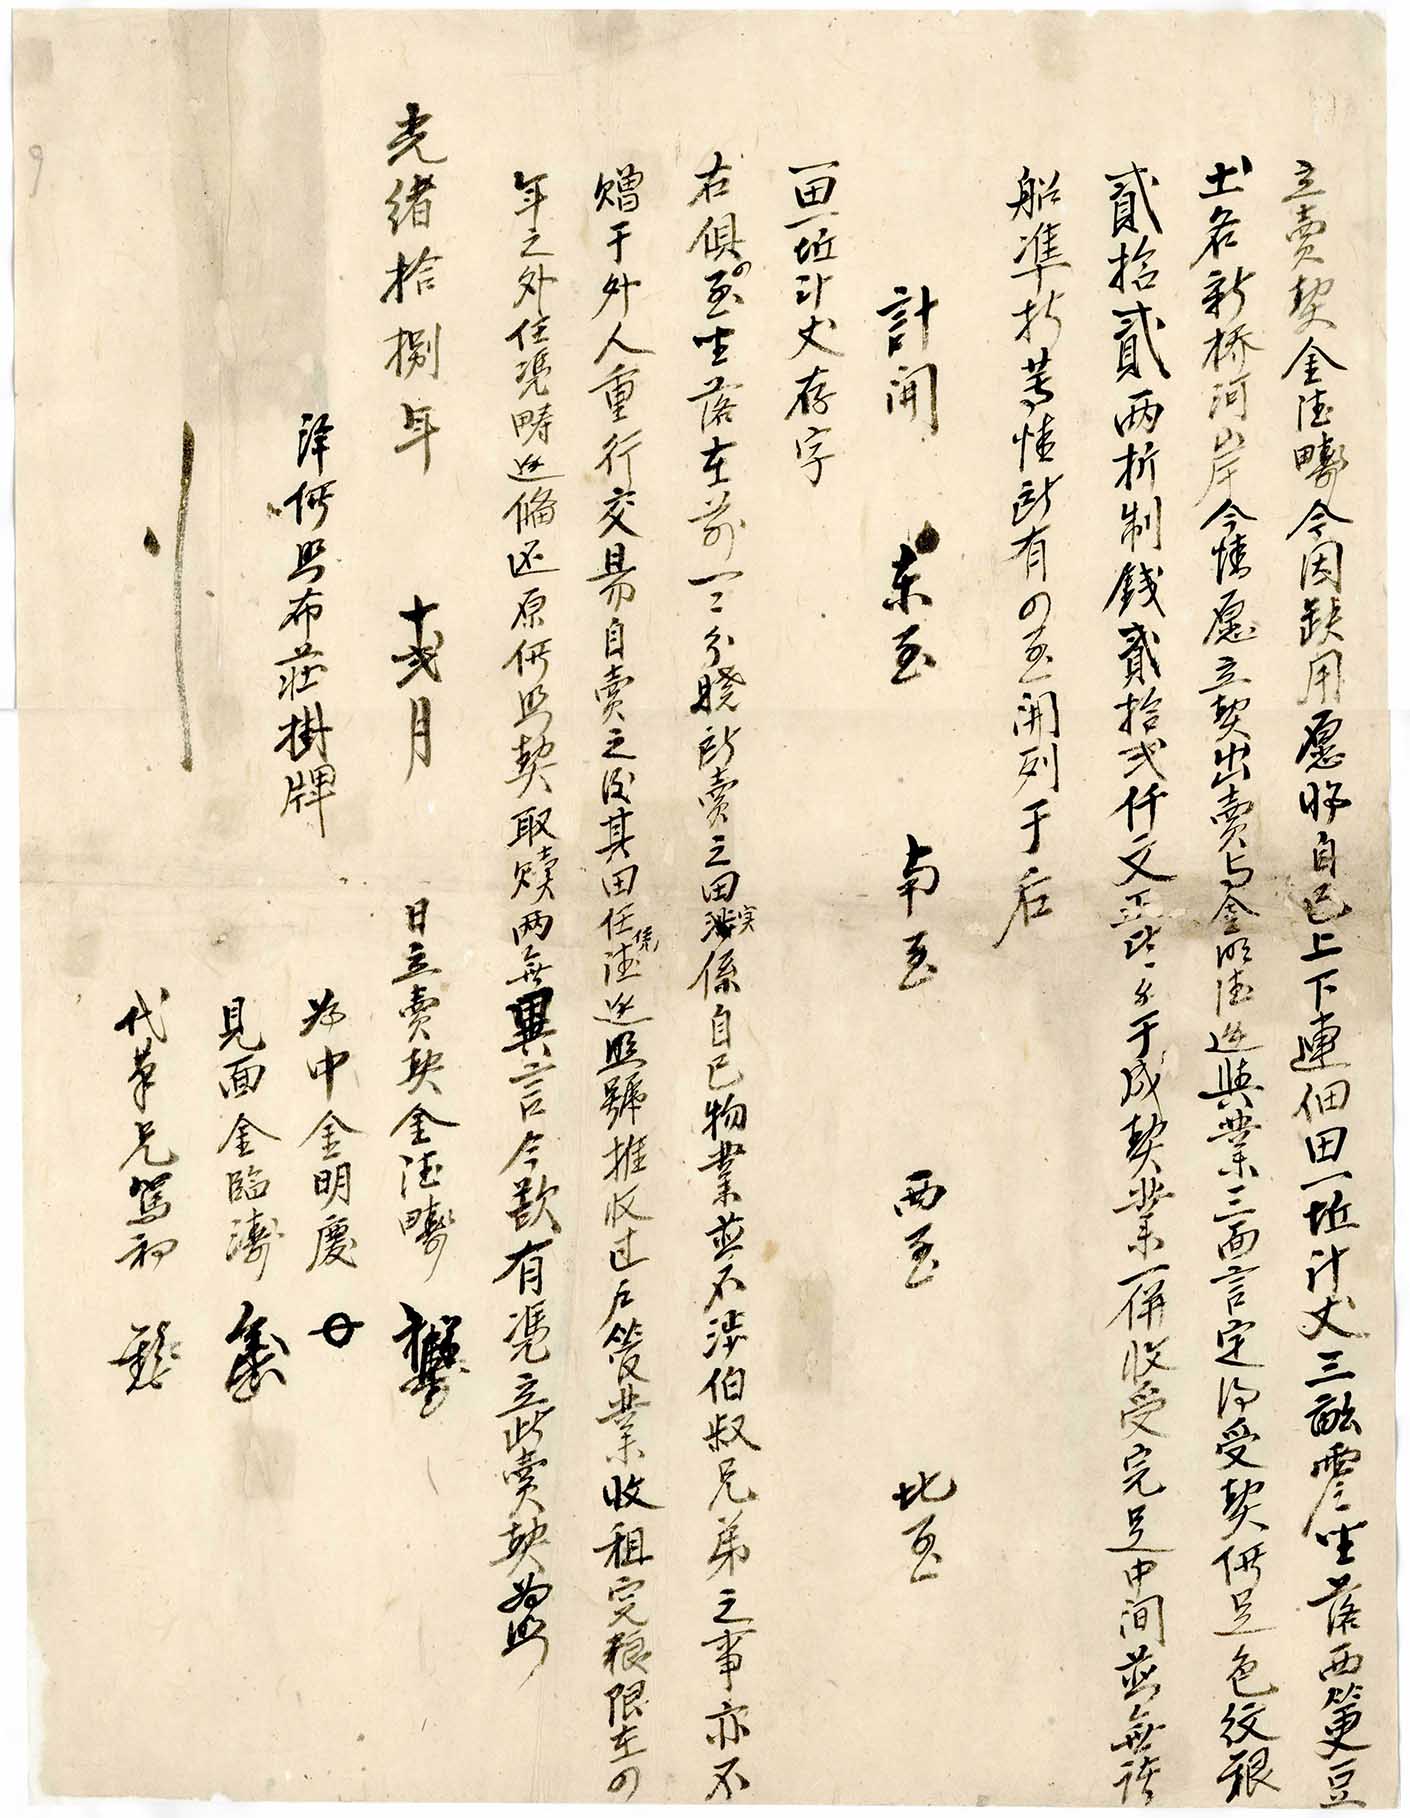 立賣契金德疇今因缺用愿將自己上下連佃田一坵計丈三畝零坐落西篁豆
土名新桥河岸今情愿立契出賣与金明德逸與業三面言定得受契價足色紋銀
貳拾貳两折制錢貳拾弍仟文正此至于成契業一併收受完足中间並無
船準折等情所有四至開列于后
計開 东至 南至 西至 北至
一田一坵計丈存字
右俱四至坐落在前一一分曉所賣之田实係自己物業並不涉伯叔兄弟之事亦不
曾于外人重行交易自賣之後其田任德逸照號推收过户管業收租完粮限在四
年之外任凭疇逸備还原價照契取贖两無異言今欲有凭立此賣契為照
光绪拾捌年 十弍月 日立賣契金德疇
洋價照布莊掛牌
为中金明慶
見面金臨濤
代笔兄駕初
9